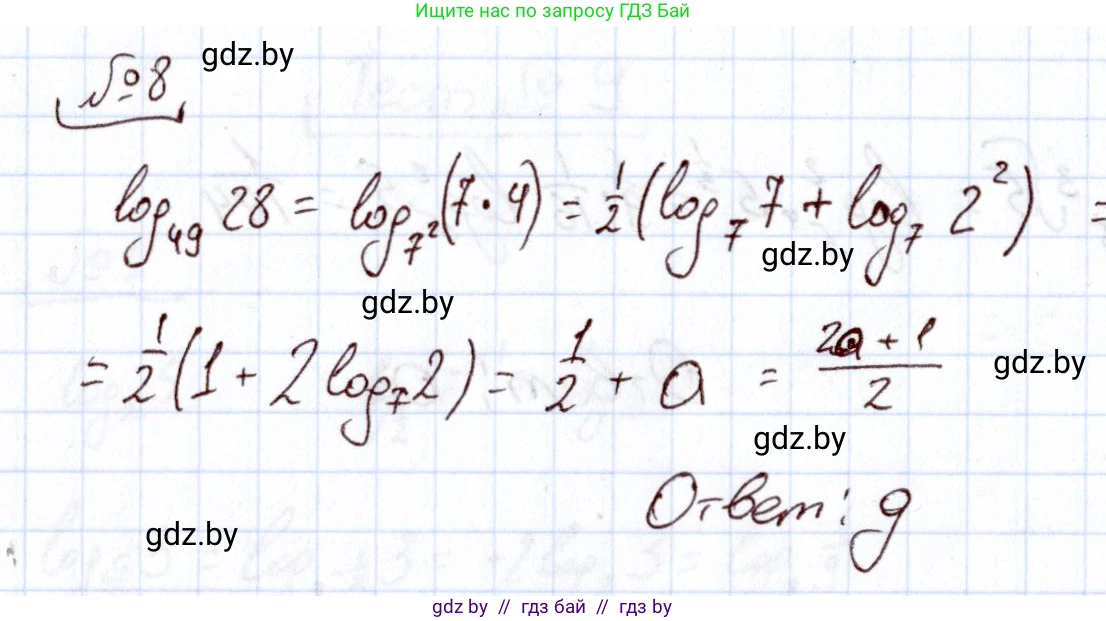 Ищите нас по запросу ГДЗ Бай
№8 gdz.by
log₄₉ 28 = log₇² (7·4) = 1/2 (log₇ 7 + log₇ 2²) =
gdz.by
gdz.by
= 1/2 (1 + 2 log₇ 2) = 1/2 + a = (2a + 1)/2
gdz.by
gdz.by
Ответ: g
gdz.by
gdz by // гдз бай // гдз by